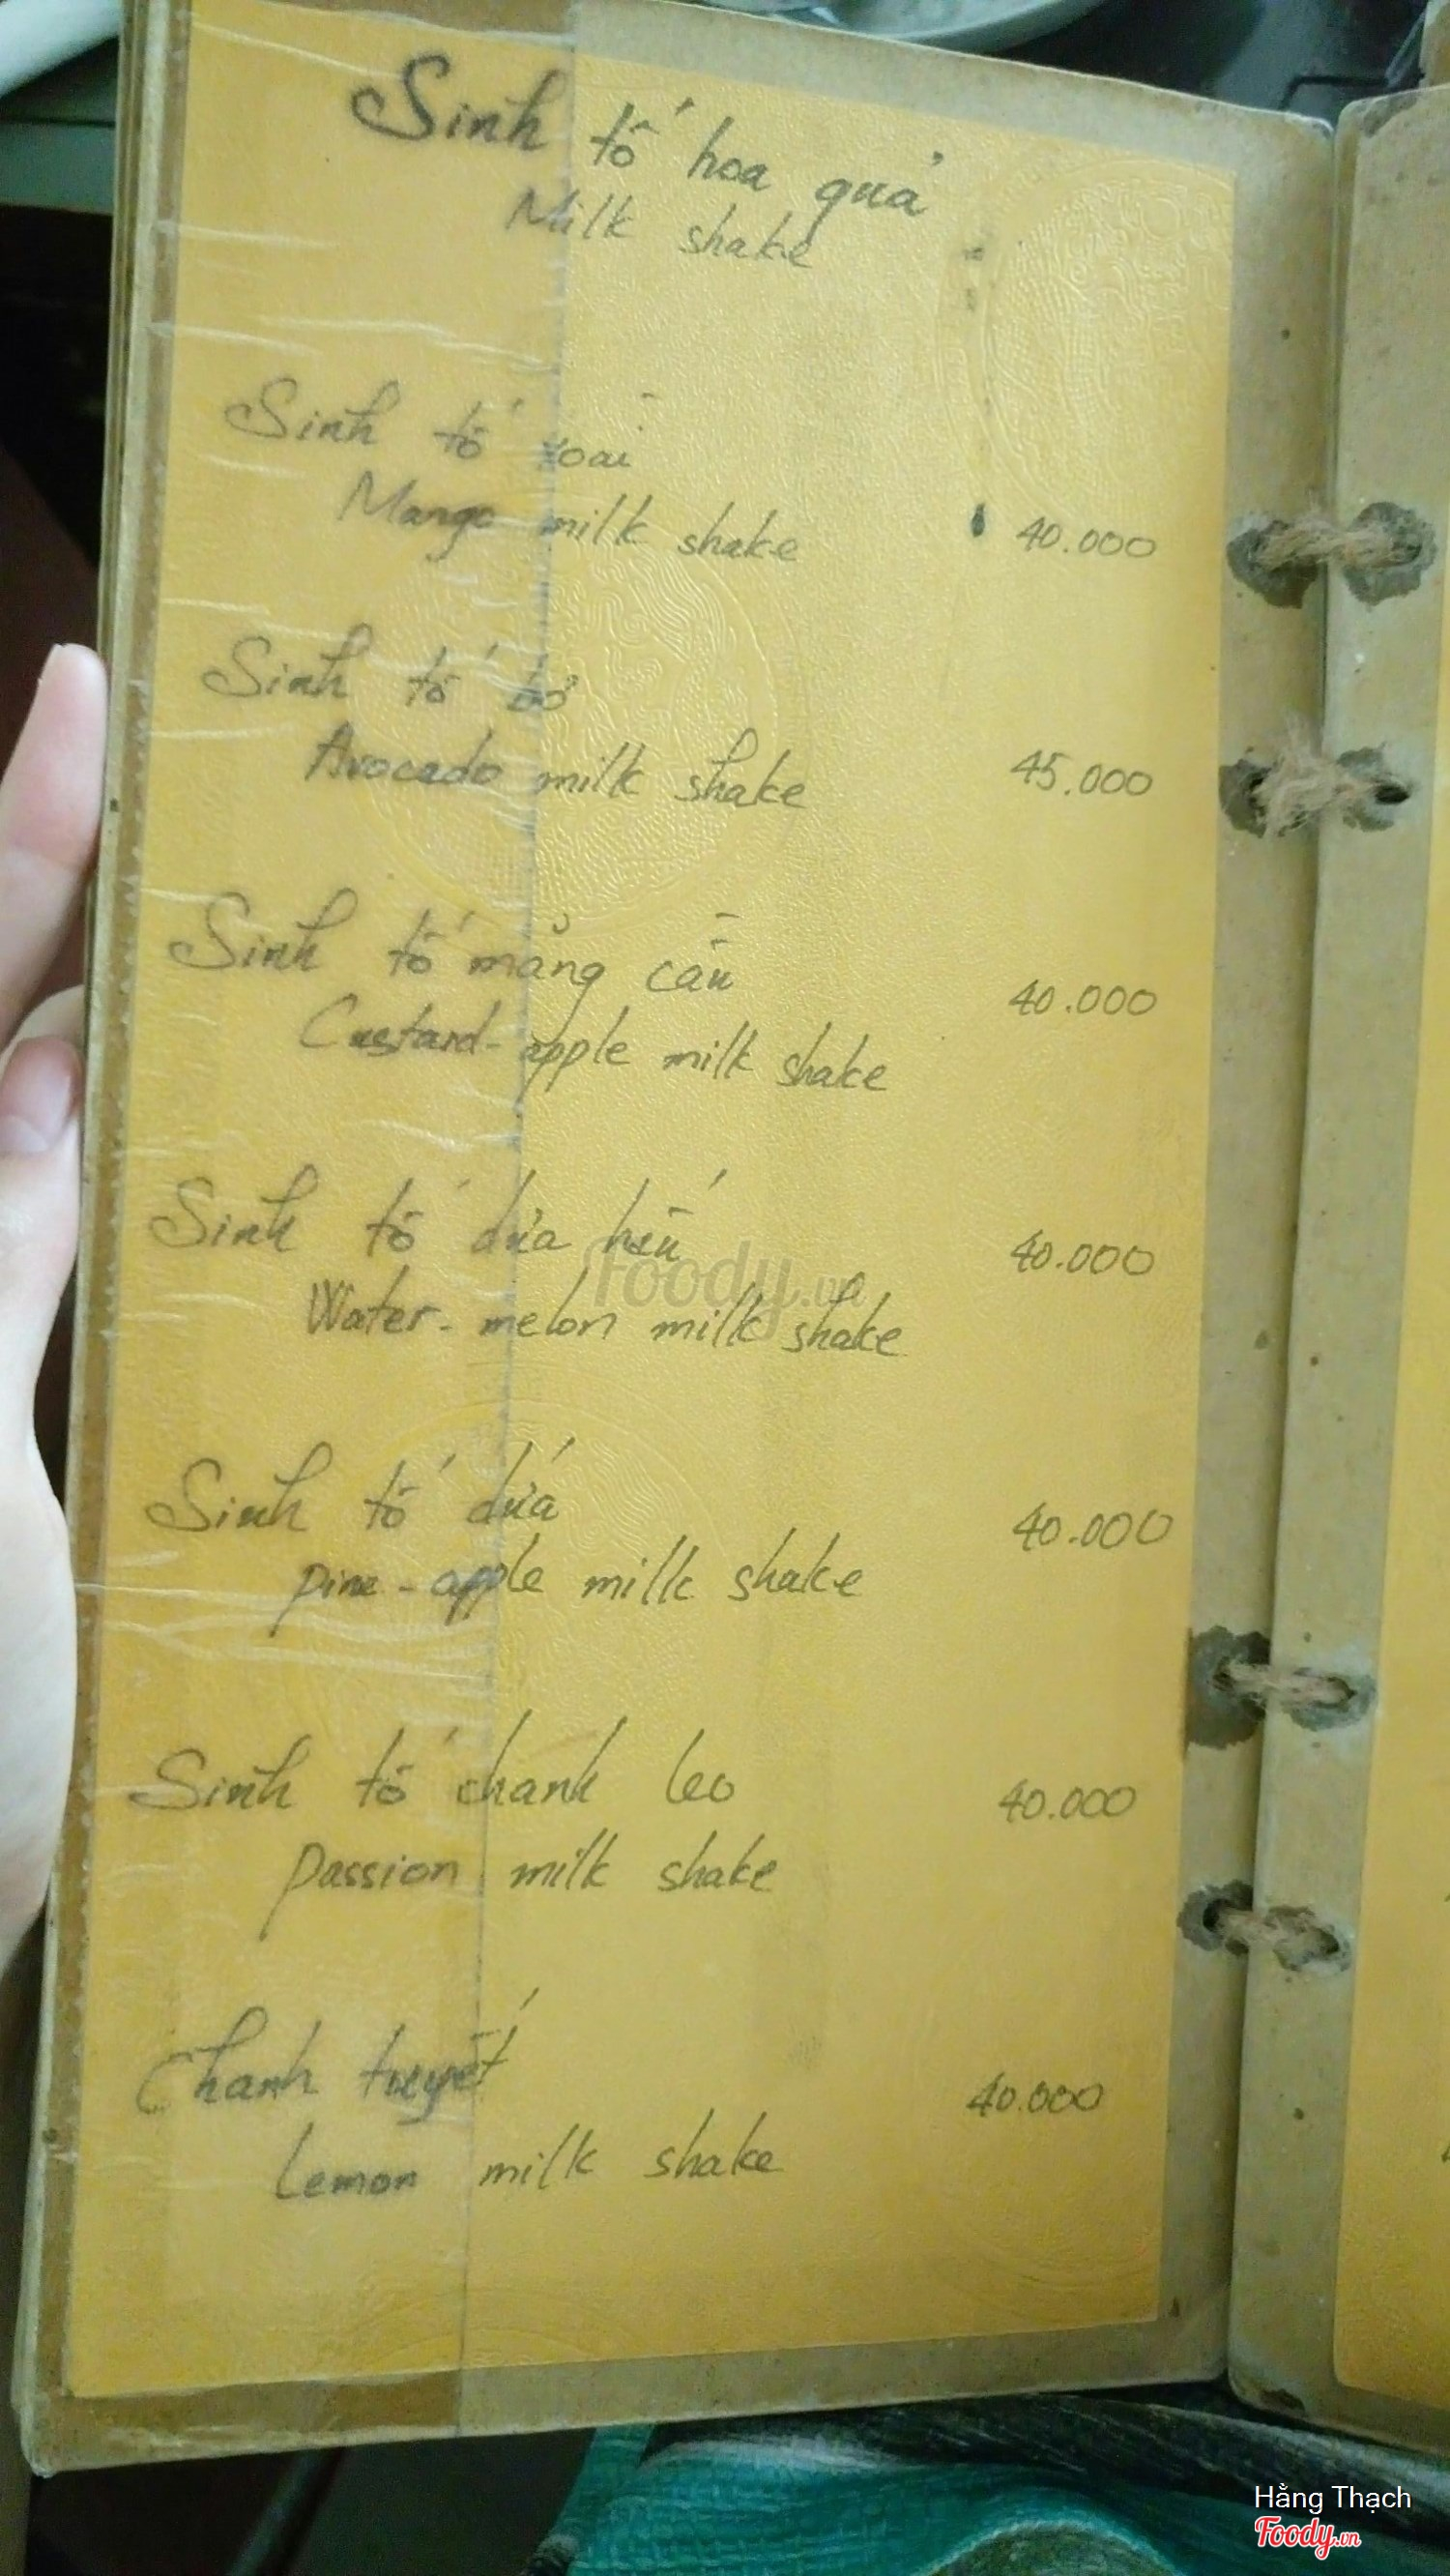 Sinh tố hoa quả
Milk shake
Sinh tố xoài
Mango milk shake 40.000
Sinh tố bơ
Avocado milk shake 45.000
Sinh tố mãng cầu 40.000
Custard-apple milk shake
Sinh tố dưa hấu 40.000
Water-melon milk shake
foody.vn
Sinh tố dứa 40.000
pine-apple milk shake
Sinh tố chanh leo 40.000
passion milk shake
Chanh tuyết 40.000
Lemon milk shake
Hằng Thạch
Foody.vn